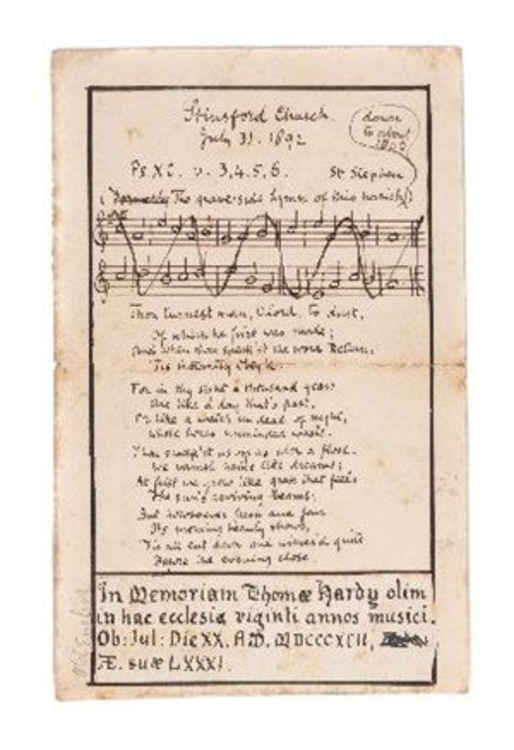 Stinsford Church
July 31. 1892
down
to about
Ps. XC. v. 3, 4, 5, 6. St Stephen
(Formerly The grave-side hymn of this parish)
Thou turnest man, O Lord, to dust,
Of which he first was made;
And when thou speak'st the word Return,
'Tis instantly obey'd.
For in thy sight a thousand years
Are like a day that's past,
Or like a watch in dead of night,
Whose hours unminded waste.
Thou sweep'st us off as with a flood,
We vanish hence like dreams;
At first we grow like grass that feels
The sun's reviving beams:
But howsoever fresh and fair
Its morning beauty shows,
'Tis all cut down and wither'd quite
Before the evening close.
In Memoriam Thomæ Hardy olim
in hac ecclesia viginti annos musici.
Ob: Jul: Die XX. A.D. MDCCCXCII,
Æ. suæ LXXXI.